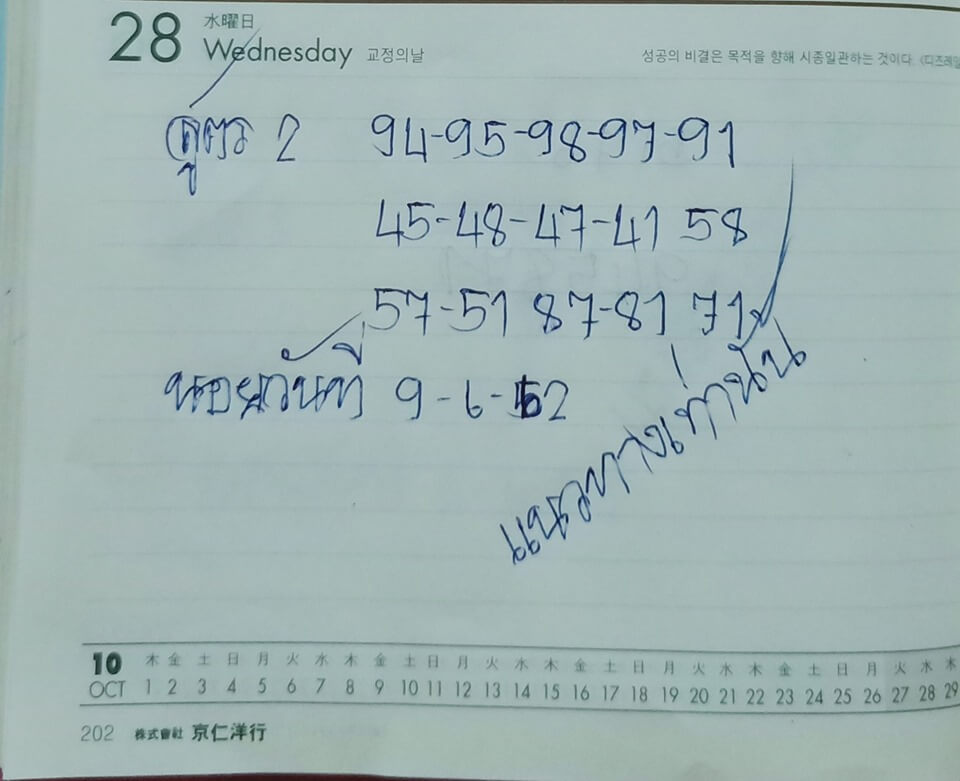 28 水曜日
Wednesday 교정의날
성공의 비결은 목적을 향해 시종일관하는 것이다. 《디즈레일
สูตร 2 94-95-98-97-91
45-48-47-41 58
57-51 87-81 71
ฮานอยวันที่ 9-6-62
แนวทางเท่านั้น
10 木 金 土 日 月 火 水 木 金 土 日 月 火 水 木 金 土 日 月 火 水 木 金 土 日 月 火 水 木
OCT 1 2 3 4 5 6 7 8 9 10 11 12 13 14 15 16 17 18 19 20 21 22 23 24 25 26 27 28 29
202 株式會社 京仁洋行